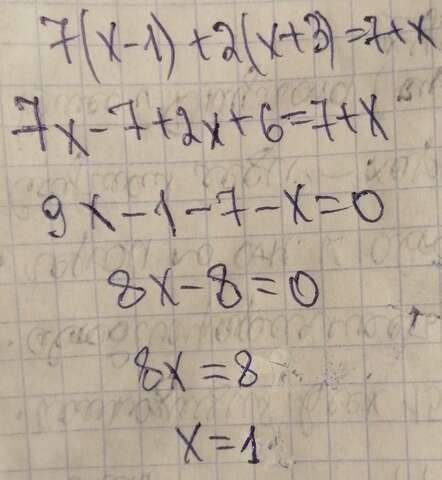 7(x-1)+2(x+3)=7+x
7x-7+2x+6=7+x
9x-1-7-x=0
8x-8=0
8x=8
x=1